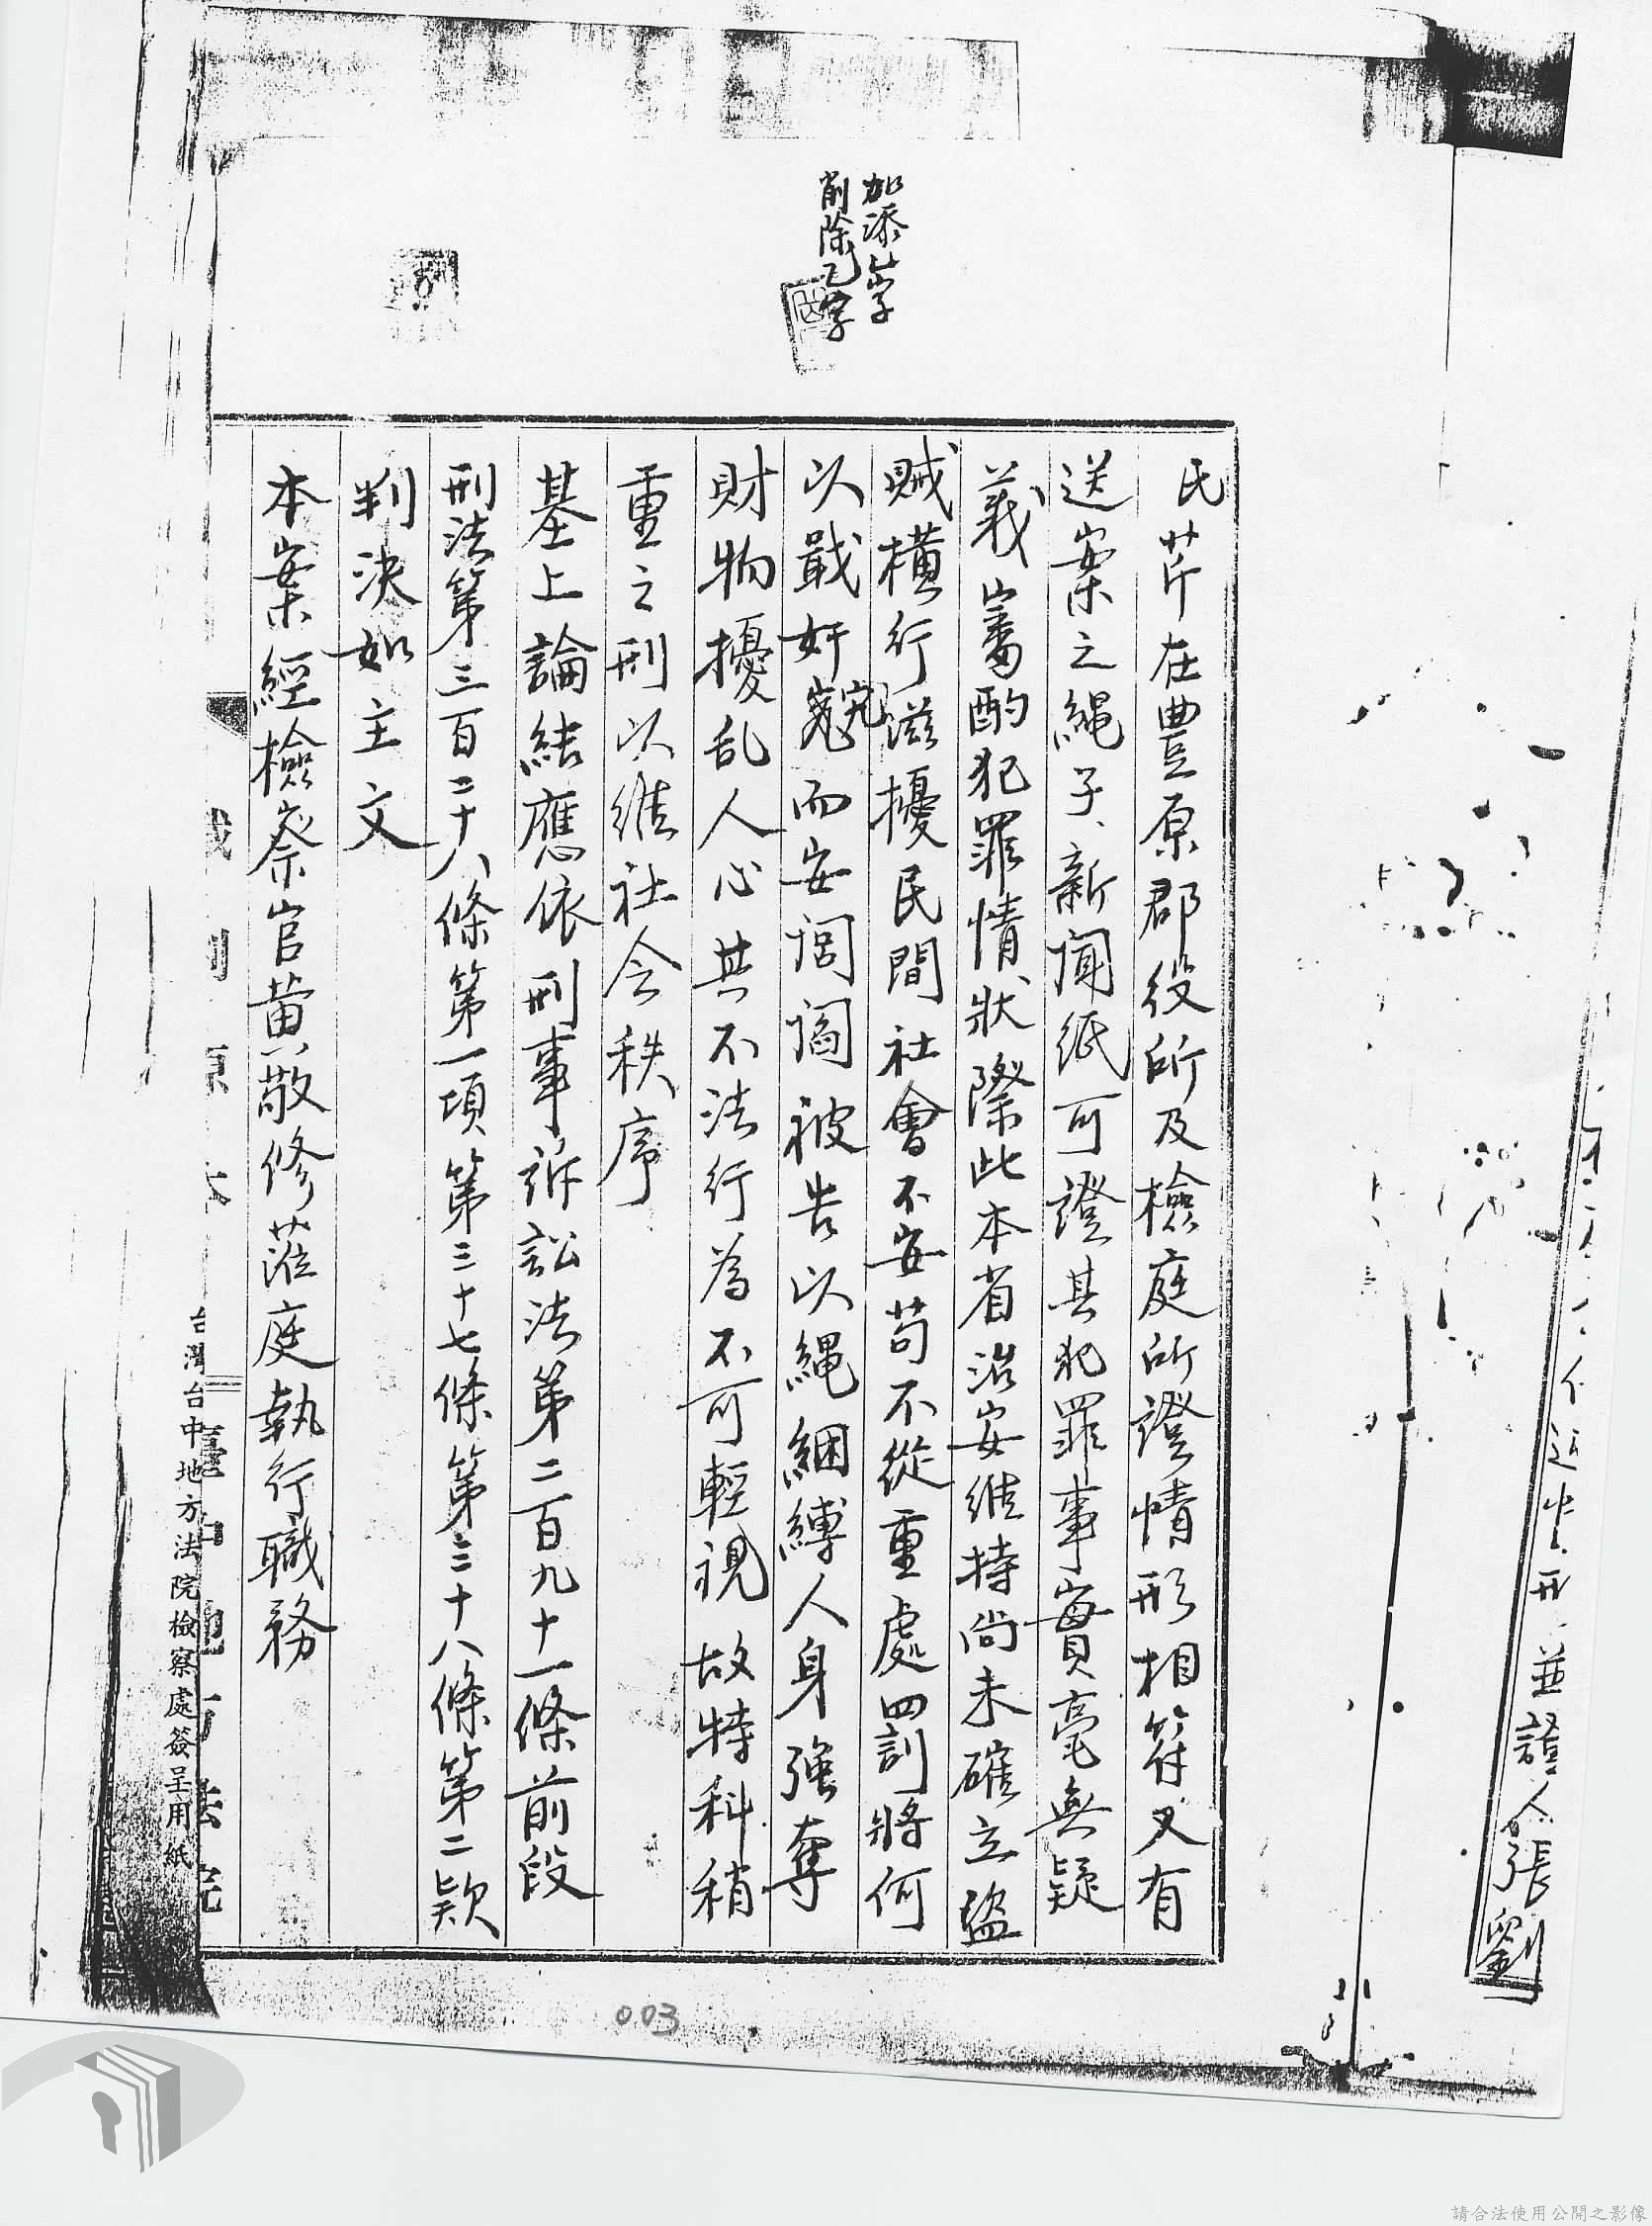 加添壹字
削除乙字
並證人張劉
氏芹在豐原郡役所及檢庭所證情形相符又有
送案之繩子、新聞紙可證其犯罪事實毫無疑
義審酌犯罪情狀際此本省治安維持尚未確立盜
賊橫行滋擾民間社會不安苟不從重處罰將何
以戢奸宄而安閭閻被告以繩綑縛人身強奪
財物擾乱人心其不法行為不可輕視故特科稍
重之刑以維社会秩序
基上論結應依刑事訴訟法第二百九十一條前段
刑法第三百二十八條第一項第三十七條第三十八條第二款
判決如主文
本案經檢察官黃敬修蒞庭執行職務
台灣台中地方法院檢察處簽呈用紙
臺中地方法院
003
請合法使用公開之影像